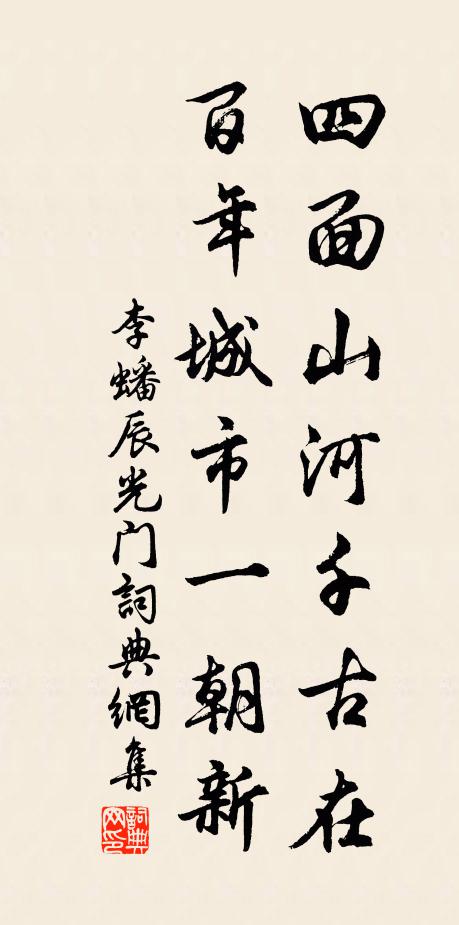 四面山河千古在
百年城市一朝新
李蟠辰光门詞典網集
詞典
网印